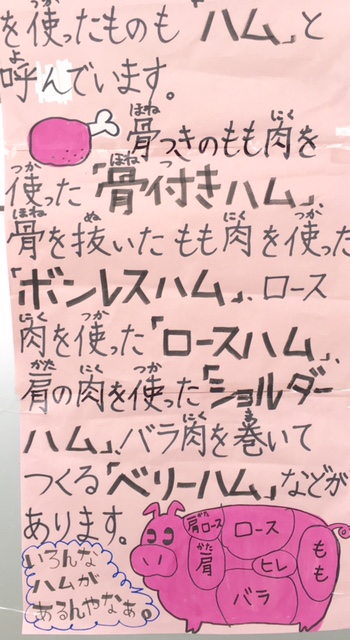 を使ったものも「ハム」と
呼んでいます。
骨つきのもも肉を
使った「骨付きハム」、
骨を抜いたもも肉を使った
「ボンレスハム」、ロース
肉を使った「ロースハム」、
肩の肉を使った「ショルダー
ハム」、バラ肉を巻いて
つくる「ベリーハム」などが
あります。
いろんな
ハムが
あるんやなぁ。
肩ロース
ロース
肩
ヒレ
もも
バラ